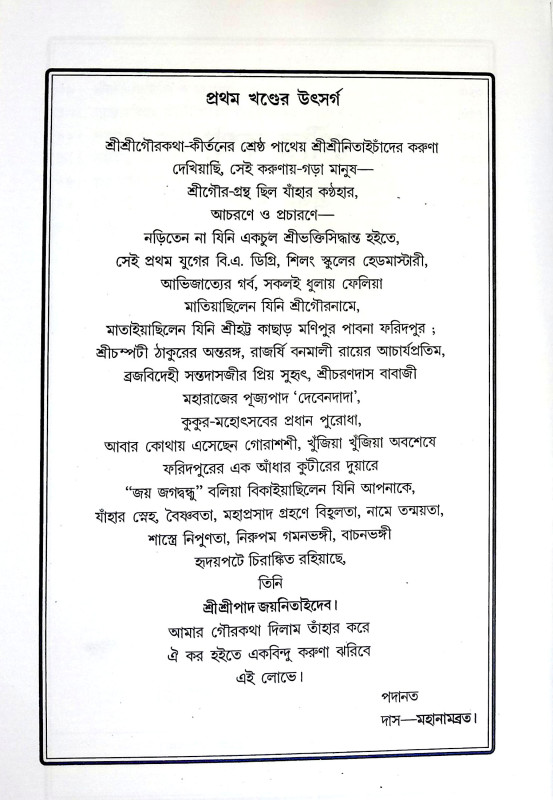 প্রথম খণ্ডের উৎসর্গ
শ্রীশ্রীগৌরকথা-কীর্তনের শ্রেষ্ঠ পাথেয় শ্রীশ্রীনিতাইচাঁদের করুণা
দেখিয়াছি, সেই করুণায়-গড়া মানুষ—
শ্রীগৌর-গ্রন্থ ছিল যাঁহার কণ্ঠহার,
আচরণে ও প্রচারণে—
নড়িতেন না যিনি একচুল শ্রীভক্তিসিদ্ধান্ত হইতে,
সেই প্রথম যুগের বি.এ. ডিগ্রি, শিলং স্কুলের হেডমাস্টারী,
আভিজাত্যের গর্ব, সকলই ধুলায় ফেলিয়া
মাতিয়াছিলেন যিনি শ্রীগৌরনামে,
মাতাইয়াছিলেন যিনি শ্রীহট্ট কাছাড় মণিপুর পাবনা ফরিদপুর ;
শ্রীচম্পটী ঠাকুরের অন্তরঙ্গ, রাজর্ষি বনমালী রায়ের আচার্যপ্রতিম,
ব্রজবিদেহী সন্তদাসজীর প্রিয় সুহৃৎ, শ্রীচরণদাস বাবাজী
মহারাজের পূজ্যপাদ ‘দেবেনদাদা’,
কুকুর-মহোৎসবের প্রধান পুরোধা,
আবার কোথায় এসেছেন গোরাশশী, খুঁজিয়া খুঁজিয়া অবশেষে
ফরিদপুরের এক আঁধার কুটীরের দুয়ারে
“জয় জগদ্বন্ধু” বলিয়া বিকাইয়াছিলেন যিনি আপনাকে,
যাঁহার স্নেহ, বৈষ্ণবতা, মহাপ্রসাদ গ্রহণে বিহ্বলতা, নামে তন্ময়তা,
শাস্ত্রে নিপুণতা, নিরুপম গমনভঙ্গী, বাচনভঙ্গী
হৃদয়পটে চিরাঙ্কিত রহিয়াছে,
তিনি
শ্রীশ্রীপাদ জয়নিতাইদেব।
আমার গৌরকথা দিলাম তাঁহার করে
ঐ কর হইতে একবিন্দু করুণা ঝরিবে
এই লোভে।
পদানত
দাস—মহানামব্রত।